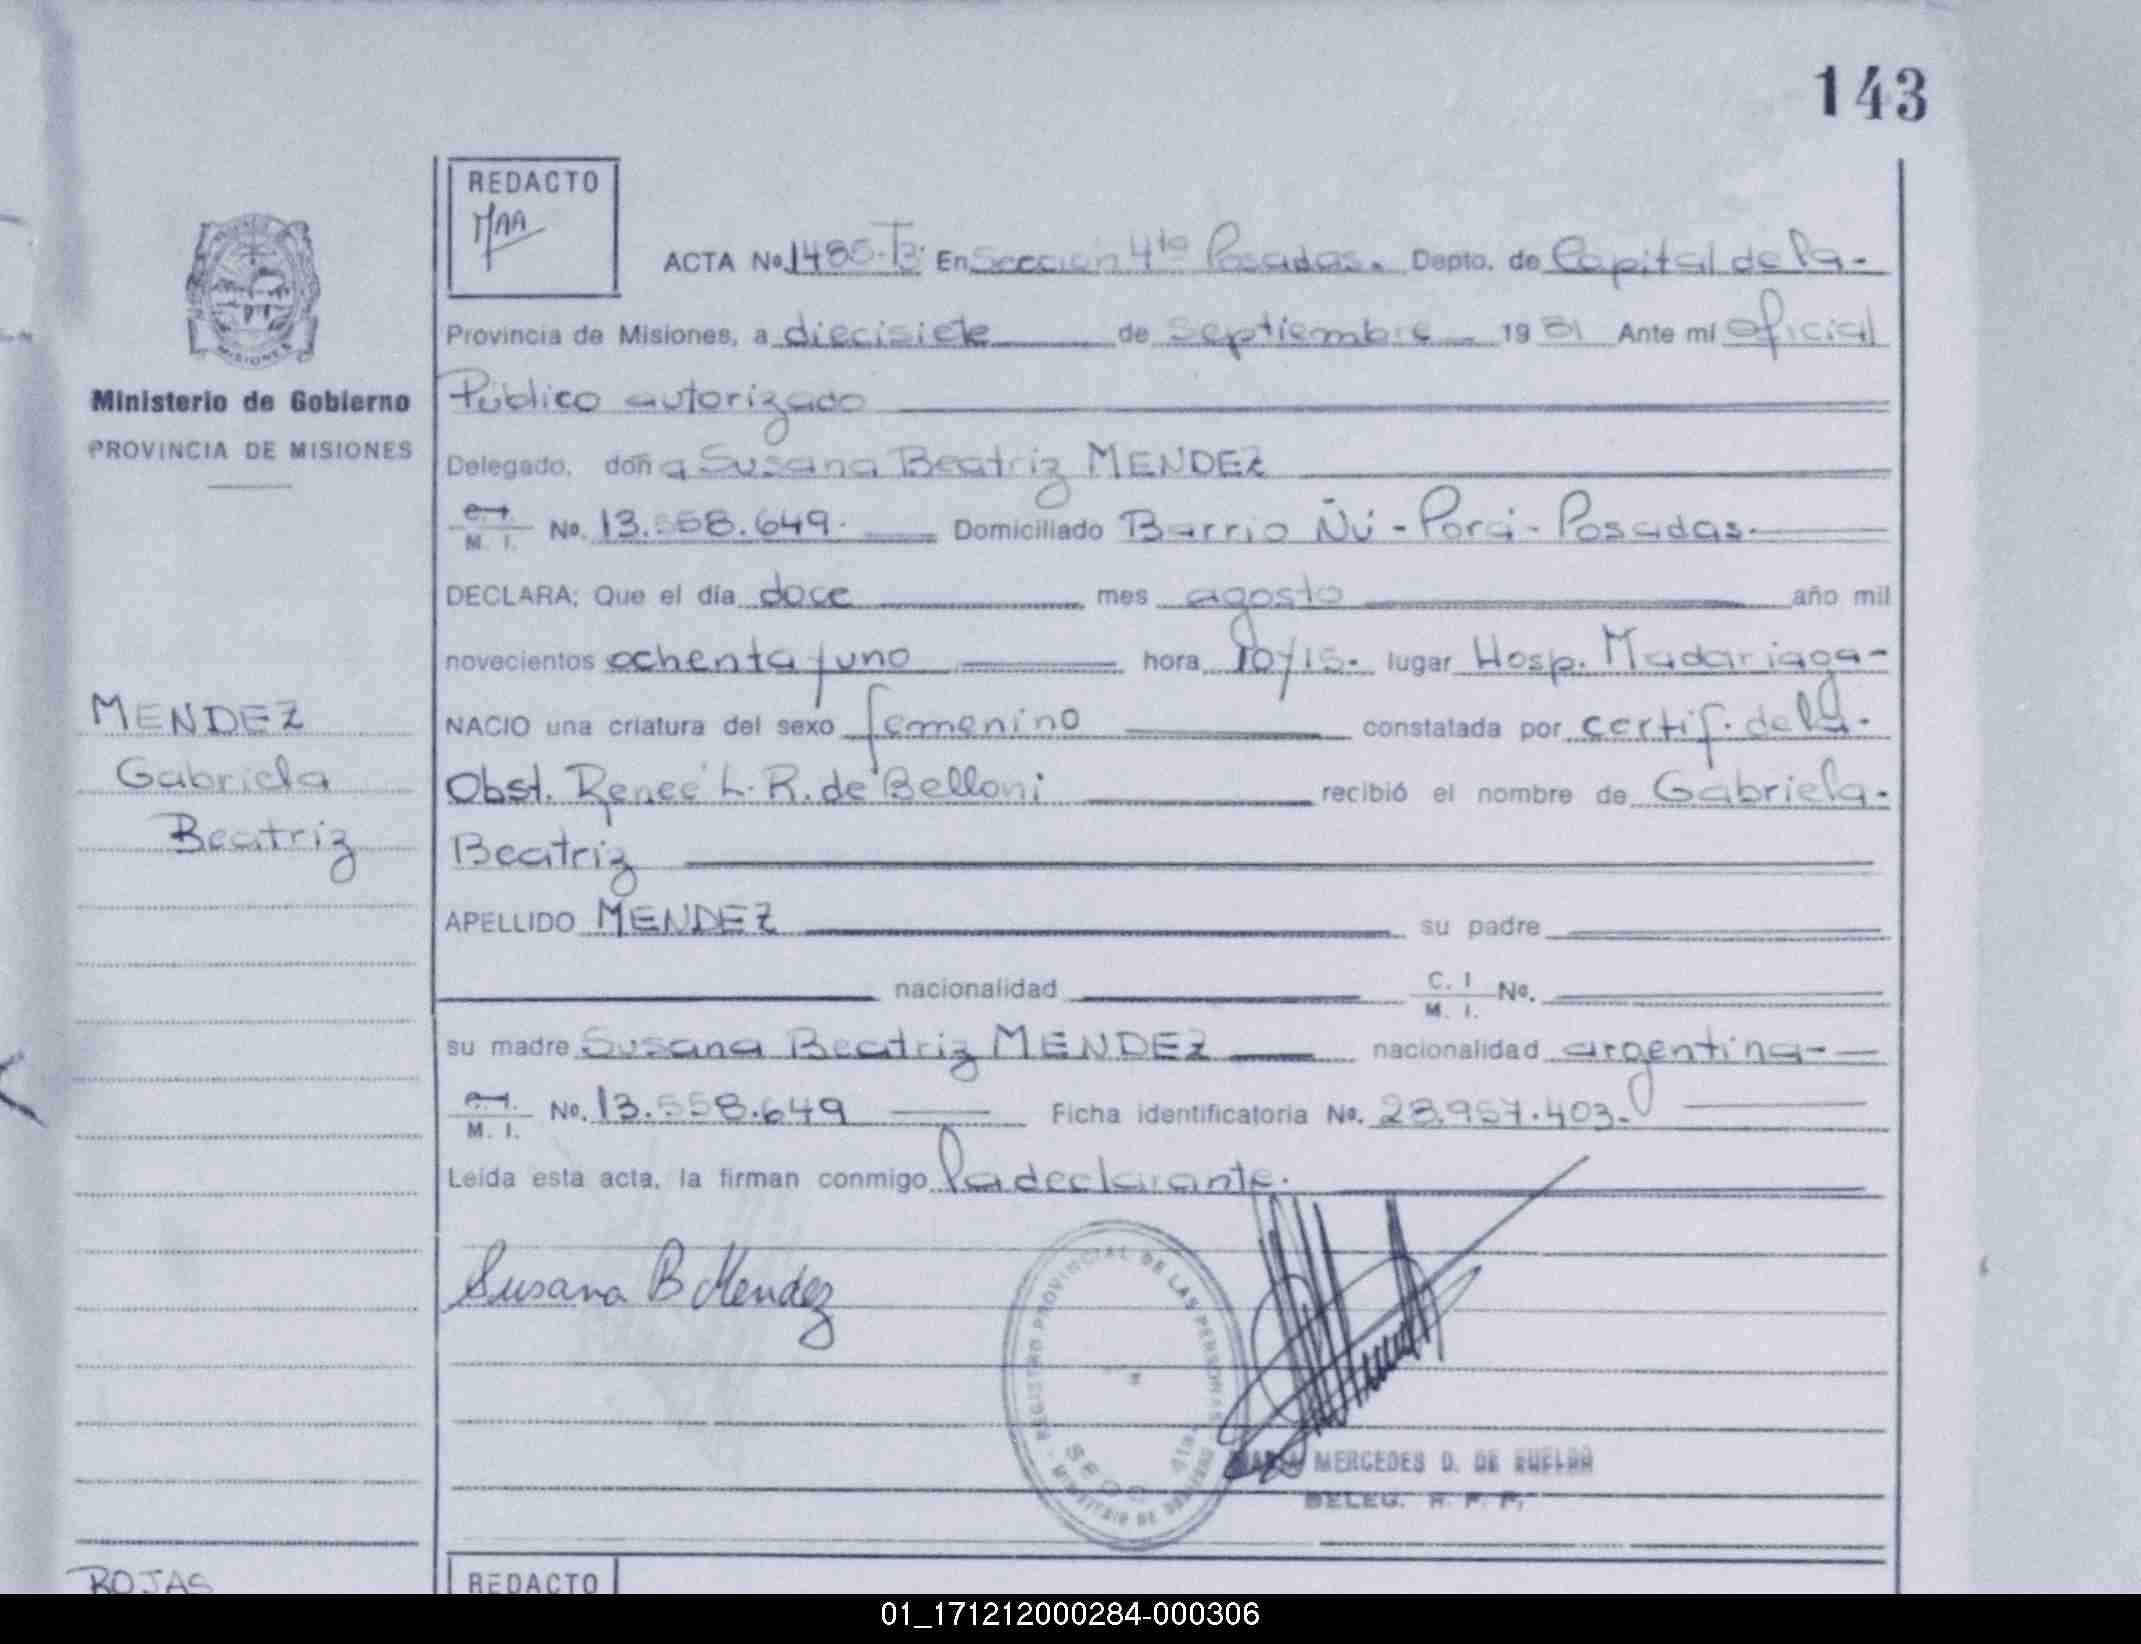 143
REDACTO
ACTA No. 1485-T3. En Sección 4ta Posadas. Depto. de Capital de la.-
MISIONES
Provincia de Misiones, a diecisiete de septiembre 1981 Ante mí Oficial
Ministerio de Gobierno
Público autorizado
PROVINCIA DE MISIONES
Delegado, doña Susana Beatriz MENDEZ
C. I.
M. I. No. 13.558.649. Domiciliado Barrio Ñú-Porá-Posadas.
DECLARA; Que el día doce mes agosto año mil
novecientos ochenta y uno hora 10/15. lugar Hosp. Madariaga-
MENDEZ
Gabriela
Beatriz
NACIO una criatura del sexo femenino constatada por certif. de la.
Obst. Reneé L. R. de Belloni recibió el nombre de Gabriela.
Beatriz
APELLIDO MENDEZ su padre
nacionalidad C. I M. I. No.
su madre Susana Beatriz MENDEZ nacionalidad argentina-
C. I.
M. I. No. 13.558.649 Ficha identificatoria No. 28.957.403.
Leída esta acta, la firman conmigo la declarante.
Susana B Mendez
REGISTRO PROVINCIAL DE LAS PERSONAS
MINISTERIO DE GOBIERNO
MERCEDES D. DE
DELEG. R. P. P.
ROJAS
REDACTO
01_171212000284-000306